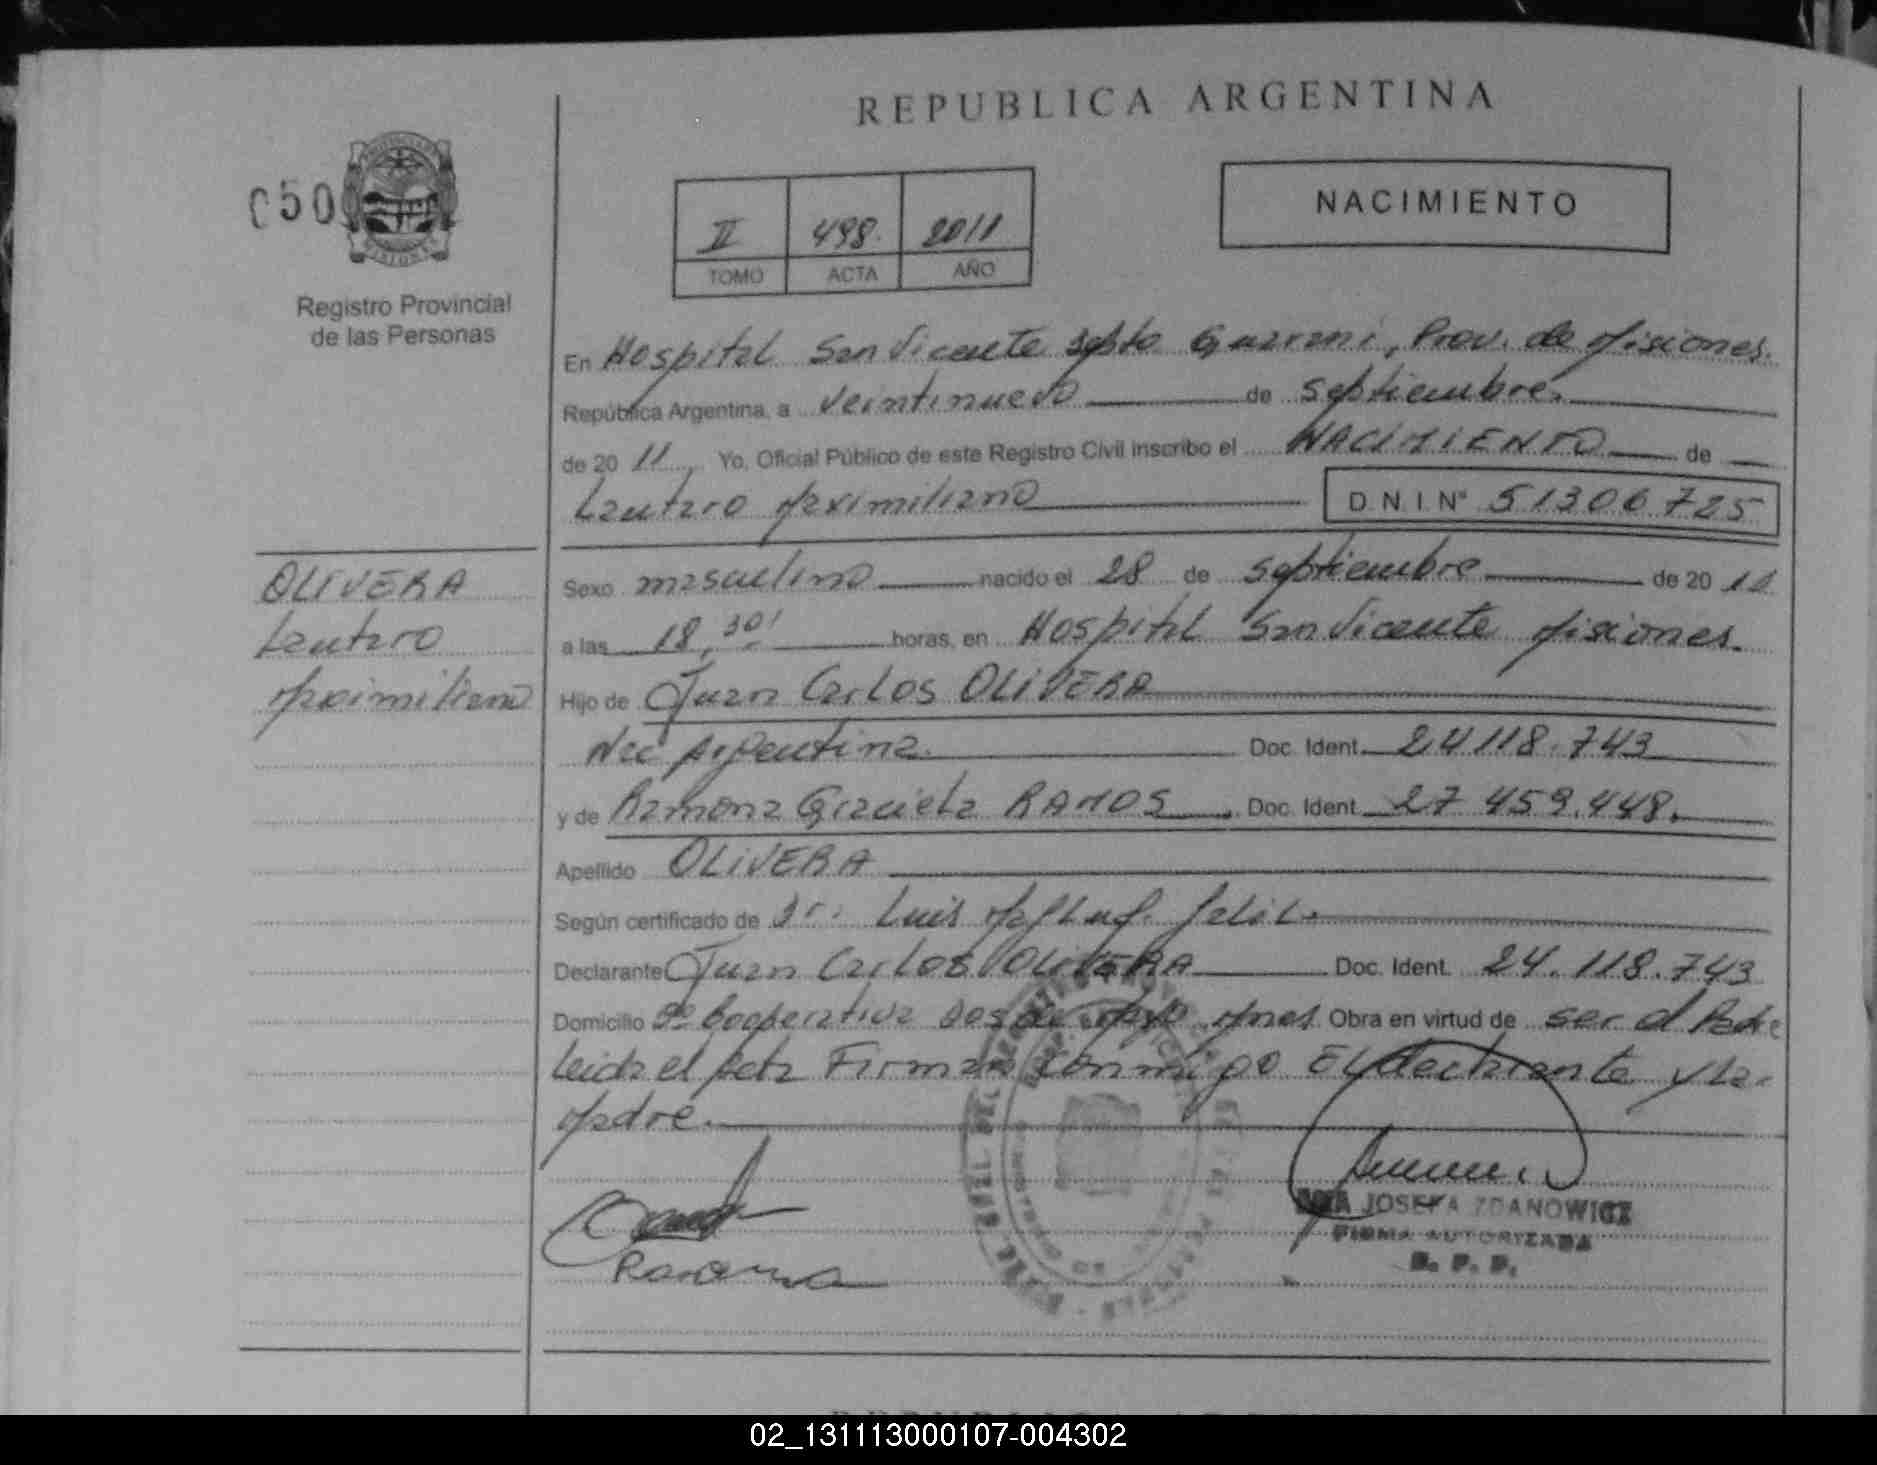 REPUBLICA ARGENTINA
050
Registro Provincial
de las Personas
II 498. 2011
TOMO ACTA AÑO
NACIMIENTO
En Hospital San Vicente Dpto Guarani, Prov. de Misiones.
República Argentina, a veintinueve de Septiembre.
de 20 11, Yo, Oficial Público de este Registro Civil inscribo el NACIMIENTO de
Lautaro Maximiliano D.N.I. Nº 51306725
OLIVERA
Lautaro
Maximiliano
Sexo masculino nacido el 28 de Septiembre de 20 11
a las 18,30' horas, en Hospital San Vicente Misiones.
Hijo de Juan Carlos OLIVERA
Nac Argentina. Doc. Ident. 24118.743
y de Ramona Graciela RAMOS. Doc. Ident. 27 459.448.
Apellido OLIVERA
Según certificado de Dr. Luis
Declarante Juan Carlos OLIVERA Doc. Ident. 24.118.743
Domicilio Bº Cooperativa Dos de Mayo Mnes. Obra en virtud de ser el Padre
Leida el Acta Firman conmigo El declarante y la
Madre.
Ramona
JOSEFA ZDANOWICZ
FIRMA AUTORIZADA
R. P. P.
02_131113000107-004302